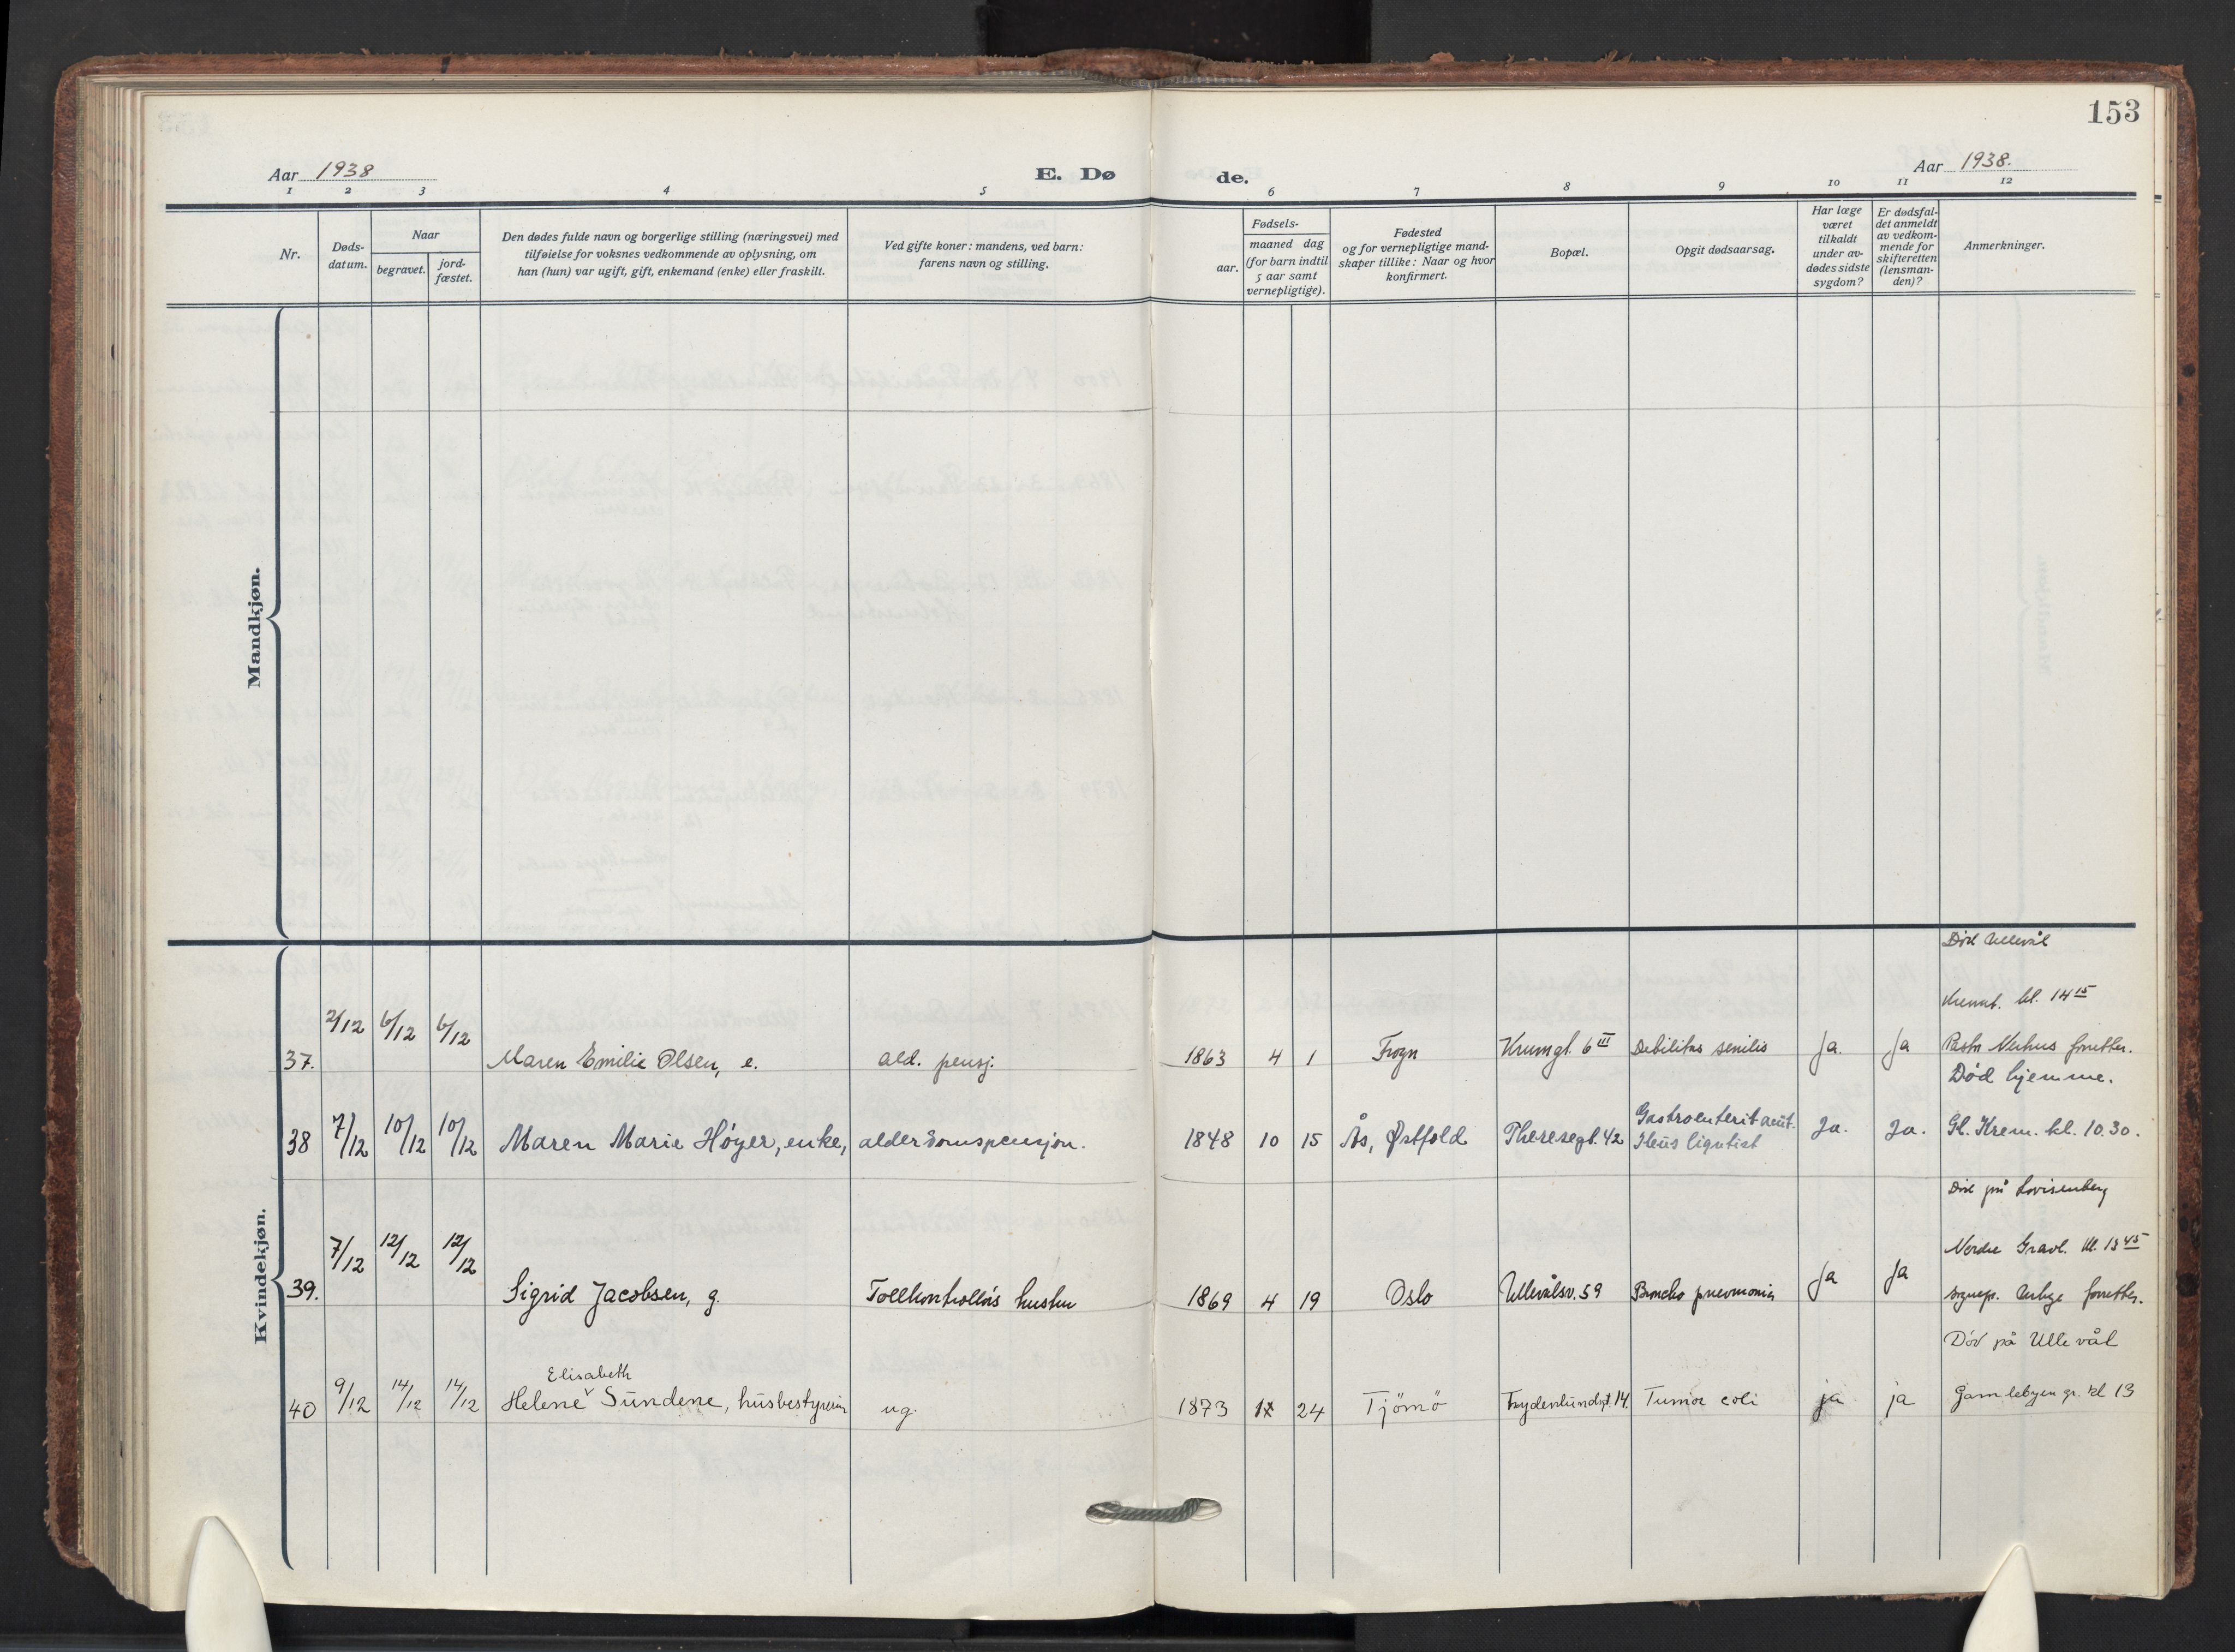 153
Aar 1938
E. Dø
de.
Aar 1938.
1 2 3 4 5 6 7 8 9 10 11 12
Nr.
Døds-
datum.
Naar
begravet.
jord-
fæstet.
Den dødes fulde navn og borgerlige stilling (næringsvei) med
tilføielse for voksnes vedkommende av oplysning, om
han (hun) var ugift, gift, enkemand (enke) eller fraskilt.
Ved gifte koner: mandens, ved barn:
farens navn og stilling.
Fødsels-
aar.
maaned dag
(for barn indtil
5 aar samt
vernepligtige).
Fødested
og for vernepligtige mand-
skaper tillike: Naar og hvor
konfirmert.
Bopæl.
Opgit dødsaarsag.
Har læge
været
tilkaldt
under av-
dødes sidste
sygdom?
Er dødsfal-
det anmeldt
av vedkom-
mende for
skifteretten
(lensman-
den)?
Anmerkninger.
Mandkjøn.
Kvindekjøn.
Død Ullevål
Kremt. kl. 14 15
37. 2/12 6/12 6/12 Maren Emilie Olsen, e. ald. pensj. 1863 4 1 Frogn Krumgt. 6 III Debilitas senilis Ja. Ja forretter.
Død hjemme.
38 7/12 10/12 10/12 Maren Marie Höyer, enke, alderdomspensjon. 1848 10 15 Ås, Østfold Theresegt. 42 Gastroenterit acut. Ja. Ja. Gl. Krem. kl. 10.30.
Ileus
Død på Lovisenberg
Nordre Gravl. kl. 13 45
39. 7/12 12/12 12/12 Sigrid Jacobsen, g. Tollkontrollørs hustru 1869 4 19 Oslo Ullevålsv. 59 Broncho pneumonia Ja Ja sognepr. forretter.
Død på Ullevål
Elisabeth
40 9/12 14/12 14/12 Helene Sundene, husbestyrerin ug. 1873 24 Tjömö Frydenlundgt. 14. Tumor coli ja ja Gamlebyen gr. kl 13